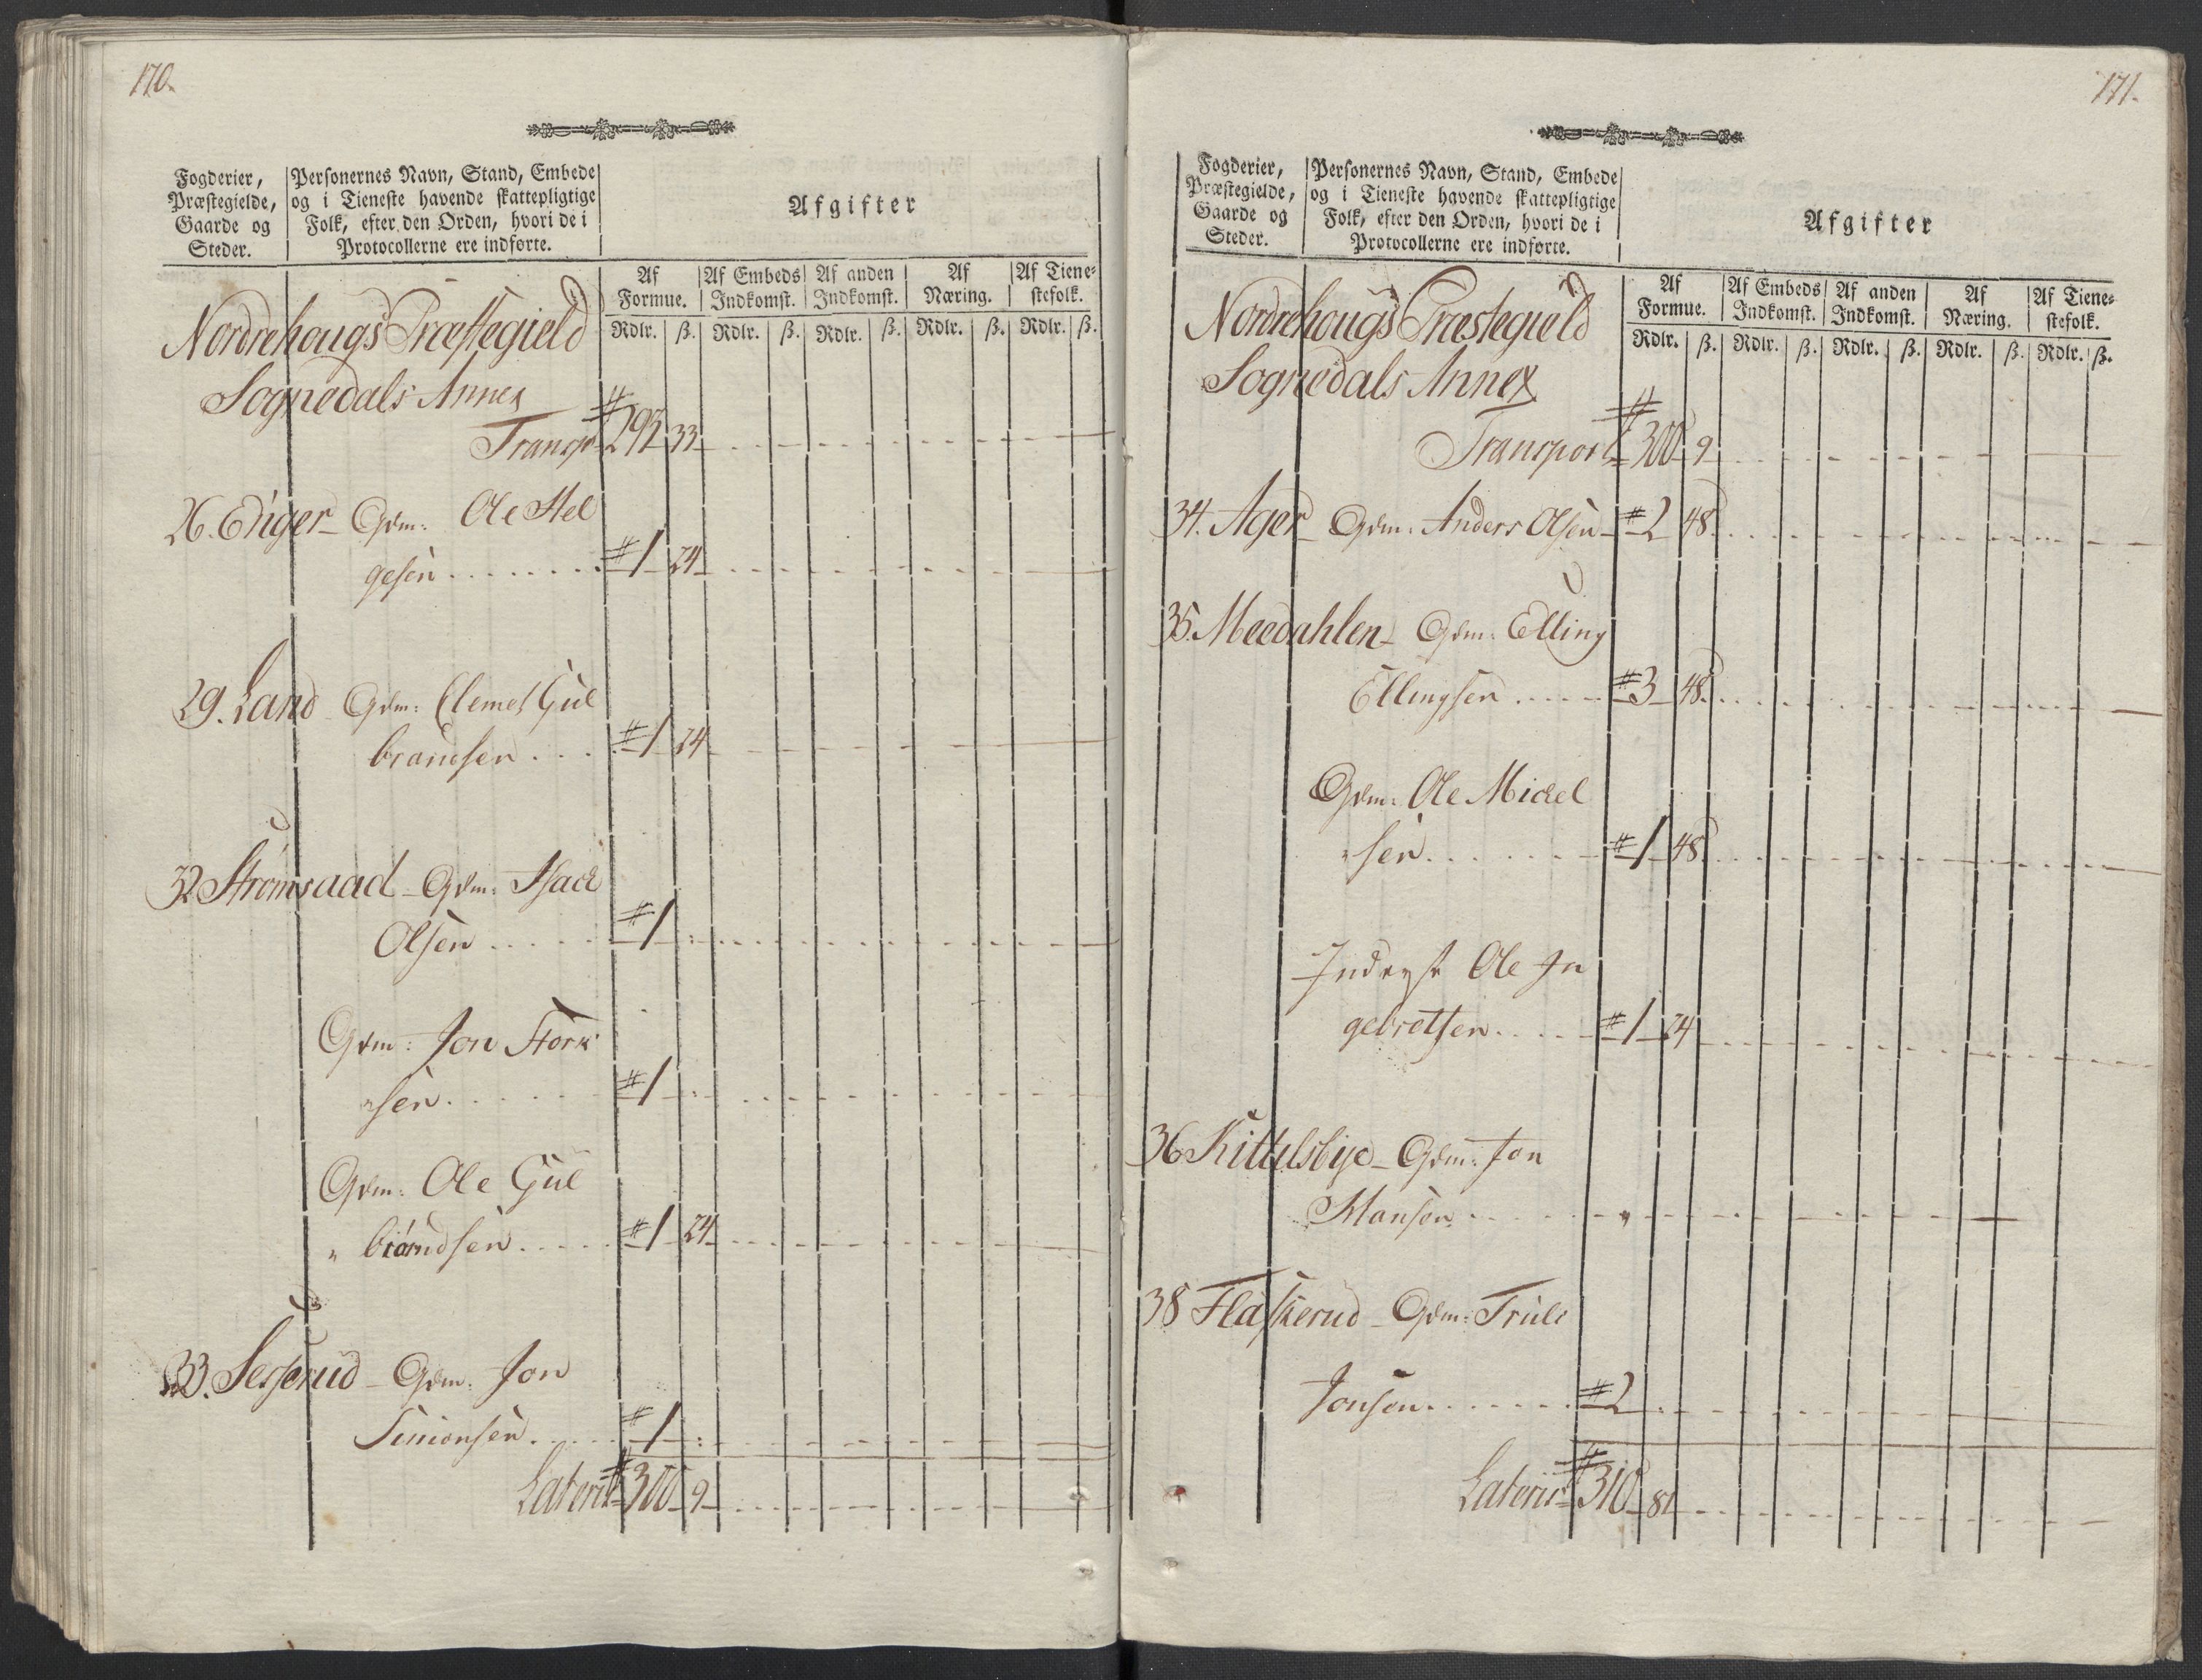 170.
Fogderier,
Præstegielde,
Gaarde og
Steder.
Personernes Navn, Stand, Embede
og i Tieneste havende skattepligtige
Folk, efter den Orden, hvori de i
Protocollerne ere indførte.
Afgifter
Af Formue. Af Embeds Indkomst. Af anden Indkomst. Af Næring. Af Tiene-stefolk.
Rdlr. ß. Rdlr. ß. Rdlr. ß. Rdlr. ß. Rdlr. ß.
Nordrehougs Præstegield
Sognedals Annex
Transp. # 292 33
26. Enger Gdm: Ole Hel
gesen # 1 24
29. Land Gdm: Clemet Gul
brandsen # 1 24
32 Strømsaad Gdm: Isack
Olsen # 1
Gdm: Jon Stork
sen # 1
Gdm: Ole Gul
brandsen # 1 24
33. Seigerud Gdm: Jon
Simonsen # 1
Lateris # 300 9
171.
Fogderier,
Præstegielde,
Gaarde og
Steder.
Personernes Navn, Stand, Embede
og i Tieneste havende skattepligtige
Folk, efter den Orden, hvori de i
Protocollerne ere indførte.
Afgifter
Af Formue. Af Embeds Indkomst. Af anden Indkomst. Af Næring. Af Tiene-stefolk.
Rdlr. ß. Rdlr. ß. Rdlr. ß. Rdlr. ß. Rdlr. ß.
Nordrehougs Præstegield
Sognedals Annex
Transport # 300 9
34. Ager Gdm: Anders Olsen # 2 48
35. Meedahlen Gdm: Elling
Ellingsen # 3 48
Gdm: Ole Mickel
sen # 1 48
Inderst Ole In
gebretsen # 1 24
36 Kittelsbye Gdm: Jon
Hansen "
38 Flaskerud Gdm: Truls
Jonsen # 2
Lateris # 310 81